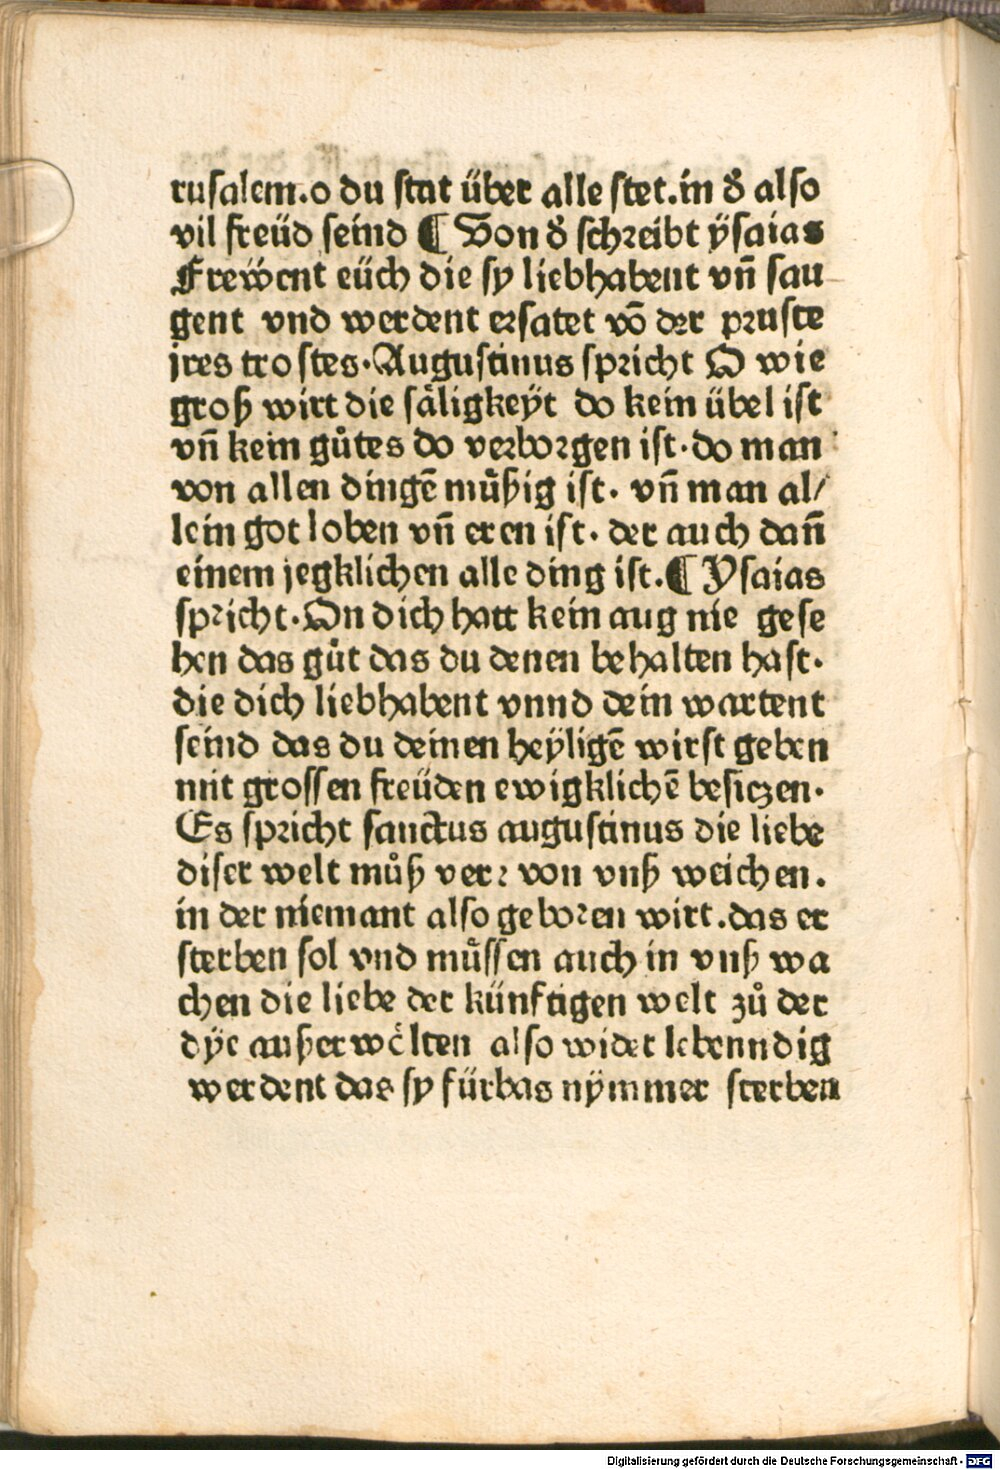 rusalem.o du stat über alle stet.in d̕ also
vil freüd seind ¶ Von d̕ schreibt ÿsaias
Frewent eüch die sy liebhabent vn̄ sau
gent vnd werdent ersatet vō der pruste
jres trostes.Augustinus spricht O wie
groß wirt die säligkeÿt do kein übel ist
vn̄ kein gůtes do verborgen ist.do man
von allen dingē müßig ist. vn̄ man al/
lein got loben vn̄ eren ist. der auch dan̄
einem jegklichen alle ding ist.¶ Ysaias
spricht.On dich hatt kein aug nie gese
hen das gůt das du denen behalten hast.
die dich liebhabent vnnd dein wartent
seind das du deinen heÿligē wirst geben
mit grossen freüden ewigklichē besiczen.
Es spricht sanctus augustinus die liebe
diser welt můß verr von vnß weichen.
in der niemant also geboren wirt.das er
sterben sol vnd müssen auch in vnß wa
chen die liebe der künftigen welt zů der
dÿe außerwölten also wider lebenndig
werdent das sy fürbas nÿmmer sterben
Digitalisierung gefördert durch die Deutsche Forschungsgemeinschaft - DFG